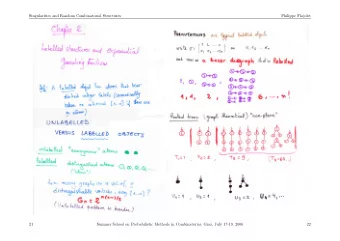 Singularities and Random Combinatorial Structures
Philippe Flajolet
Chapter 2.
Labelled structures and exponential
Generating Functions
Def: A labelled object has atoms that bear
distinct integer labels (canonically
taken on interval [1..n] if there are
n atoms)
UNLABELLED
VERSUS LABELLED OBJECTS
unlabelled "anonymous" atoms
labelled distinguished atoms
("colours")
how many graphs on a set of
distinguishable vertices, say [1..n]?
Gn = 2^{n(n-1)/2}
(Unlabelled problem is harder)
PERMUTATIONS are typical labelled objects
write σ =
or σ1 σ2 ... σn
and view as a linear digraph that is labelled
1, 1, 2, 6, ..., n!
Rooted trees (graph theoretical) "non-plane"
T1=1 T2=2 T3=9 (T4=64..)
U1=1 U2=1 U3=2 U4=4,...
21
Summer School on Probabilistic Methods in Combinatorics, Graz, July 17-19 2006
22